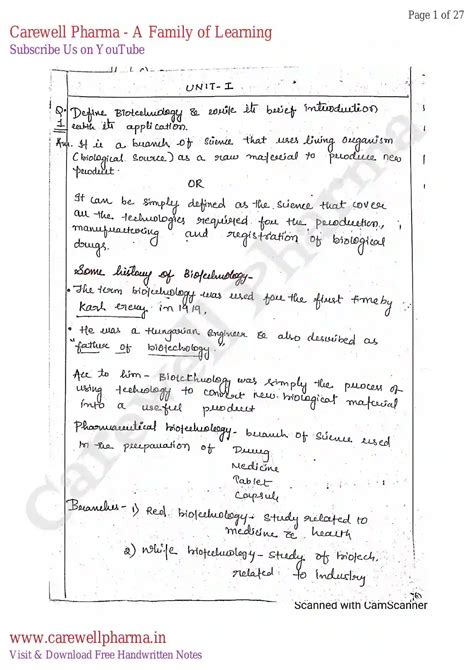 Page 1 of 27
Carewell Pharma - A Family of Learning
Subscribe Us on YouTube
UNIT-I
Q. Define Biotechnology & write its brief introduction
1 with its application.
Ans. It is a branch of science that uses living organism
(biological source) as a raw material to produce new
product.
OR
It can be simply defined as the science that cover
all the technologies required for the production,
manufacturing and registration of biological
drugs.
Some history of Biotechnology-
• The term biotechnology was used for the first time by
Karl ereky in 1919,
• He was a Hungarian engineer & also described as
"father of biotechology"
Acc to him - Biotechnology was simply the process of
using technology to convert new biological material
into a useful product
Pharmaceutical biotechnology- branch of science used
in the preparation of Drug
Medicine
Tablet
Capsule
Branches- 1) Red biotechnology- study related to
medicine & health
2) White biotechnology- study of biotech.
related to industry
Scanned with CamScanner
Carewell Pharma
www.carewellpharma.in
Visit & Download Free Handwritten Notes